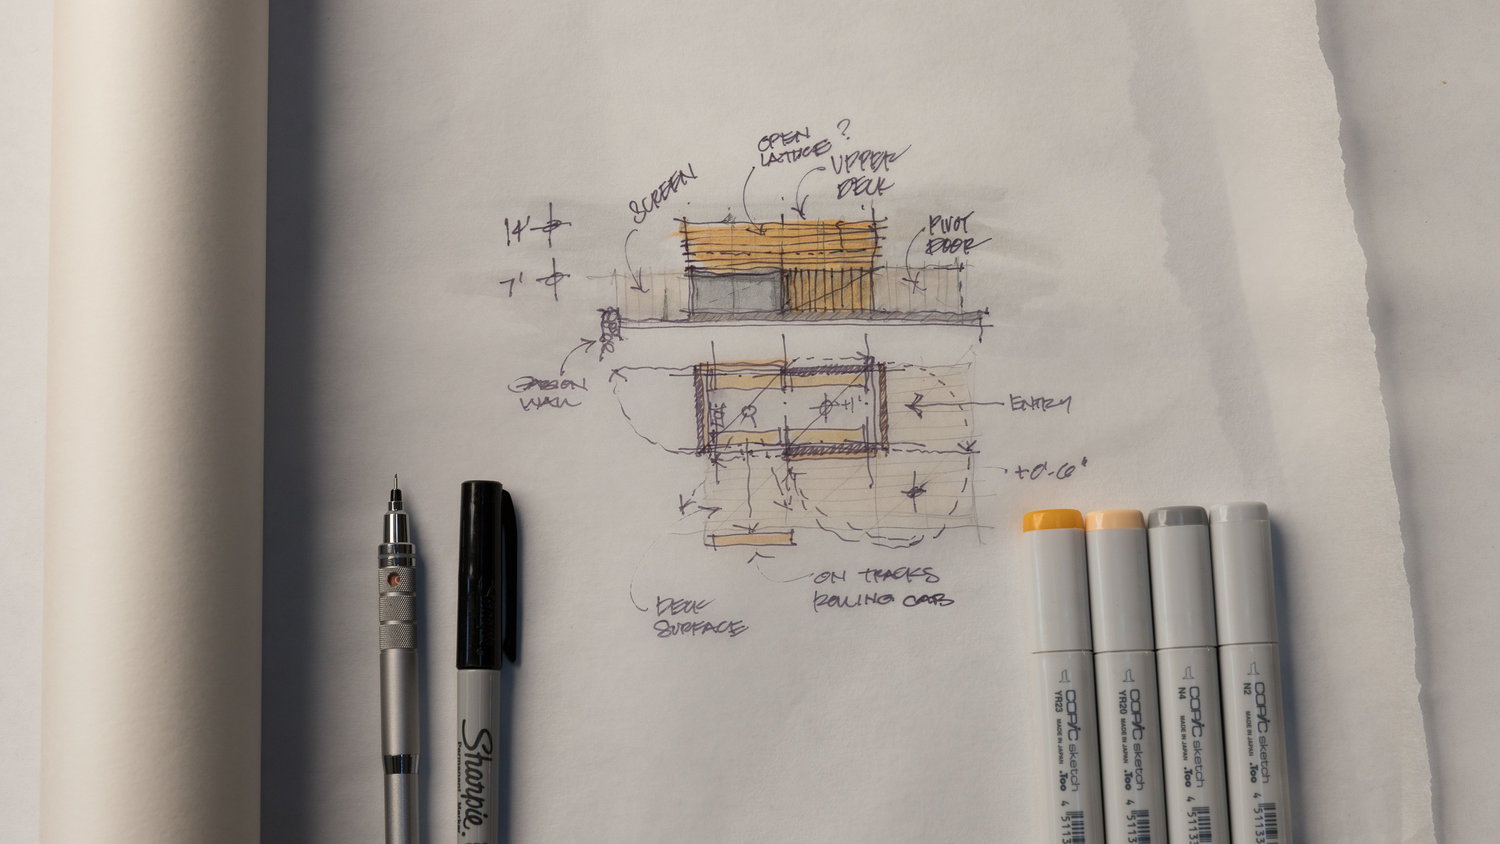 OPEN
LATTICE ?
UPPER
DECK
SCREEN
14'
7'
PIVOT
DOOR
GABION
WALL
ENTRY
+1'
+0'-6"
ON TRACKS
ROLLING CAB
DECK
SURFACE
Sharpie.
Permanent Marker
COPIC sketch
YR23 MADE IN JAPAN .Too 4
COPIC sketch
YR20 MADE IN JAPAN .Too 4
COPIC sketch
N4 MADE IN JAPAN .Too 4
COPIC sketch
N2 MADE IN JAPAN .Too 4
51133
51133
51133
51133